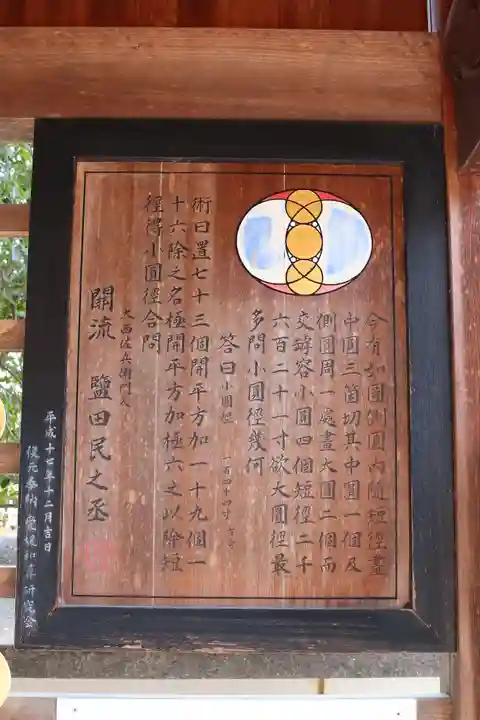 今有如圖側圓內隨短徑畫
中圓三箇切其中圓一個及
側圓周一處畫大圓二個而
交罅容小圓四個短徑二千
六百二十一寸欲大圓徑最
多問小圓徑幾何
答曰小圓徑 一百四十四寸
術曰置七十三個開平方加一十九個一
十六除之名極開平方加極六之以除短
徑得小圓徑合問
大西佐兵衛門人
關流 鹽田民之丞
平成十七年十二月吉日
復元奉納 愛媛和算研究会